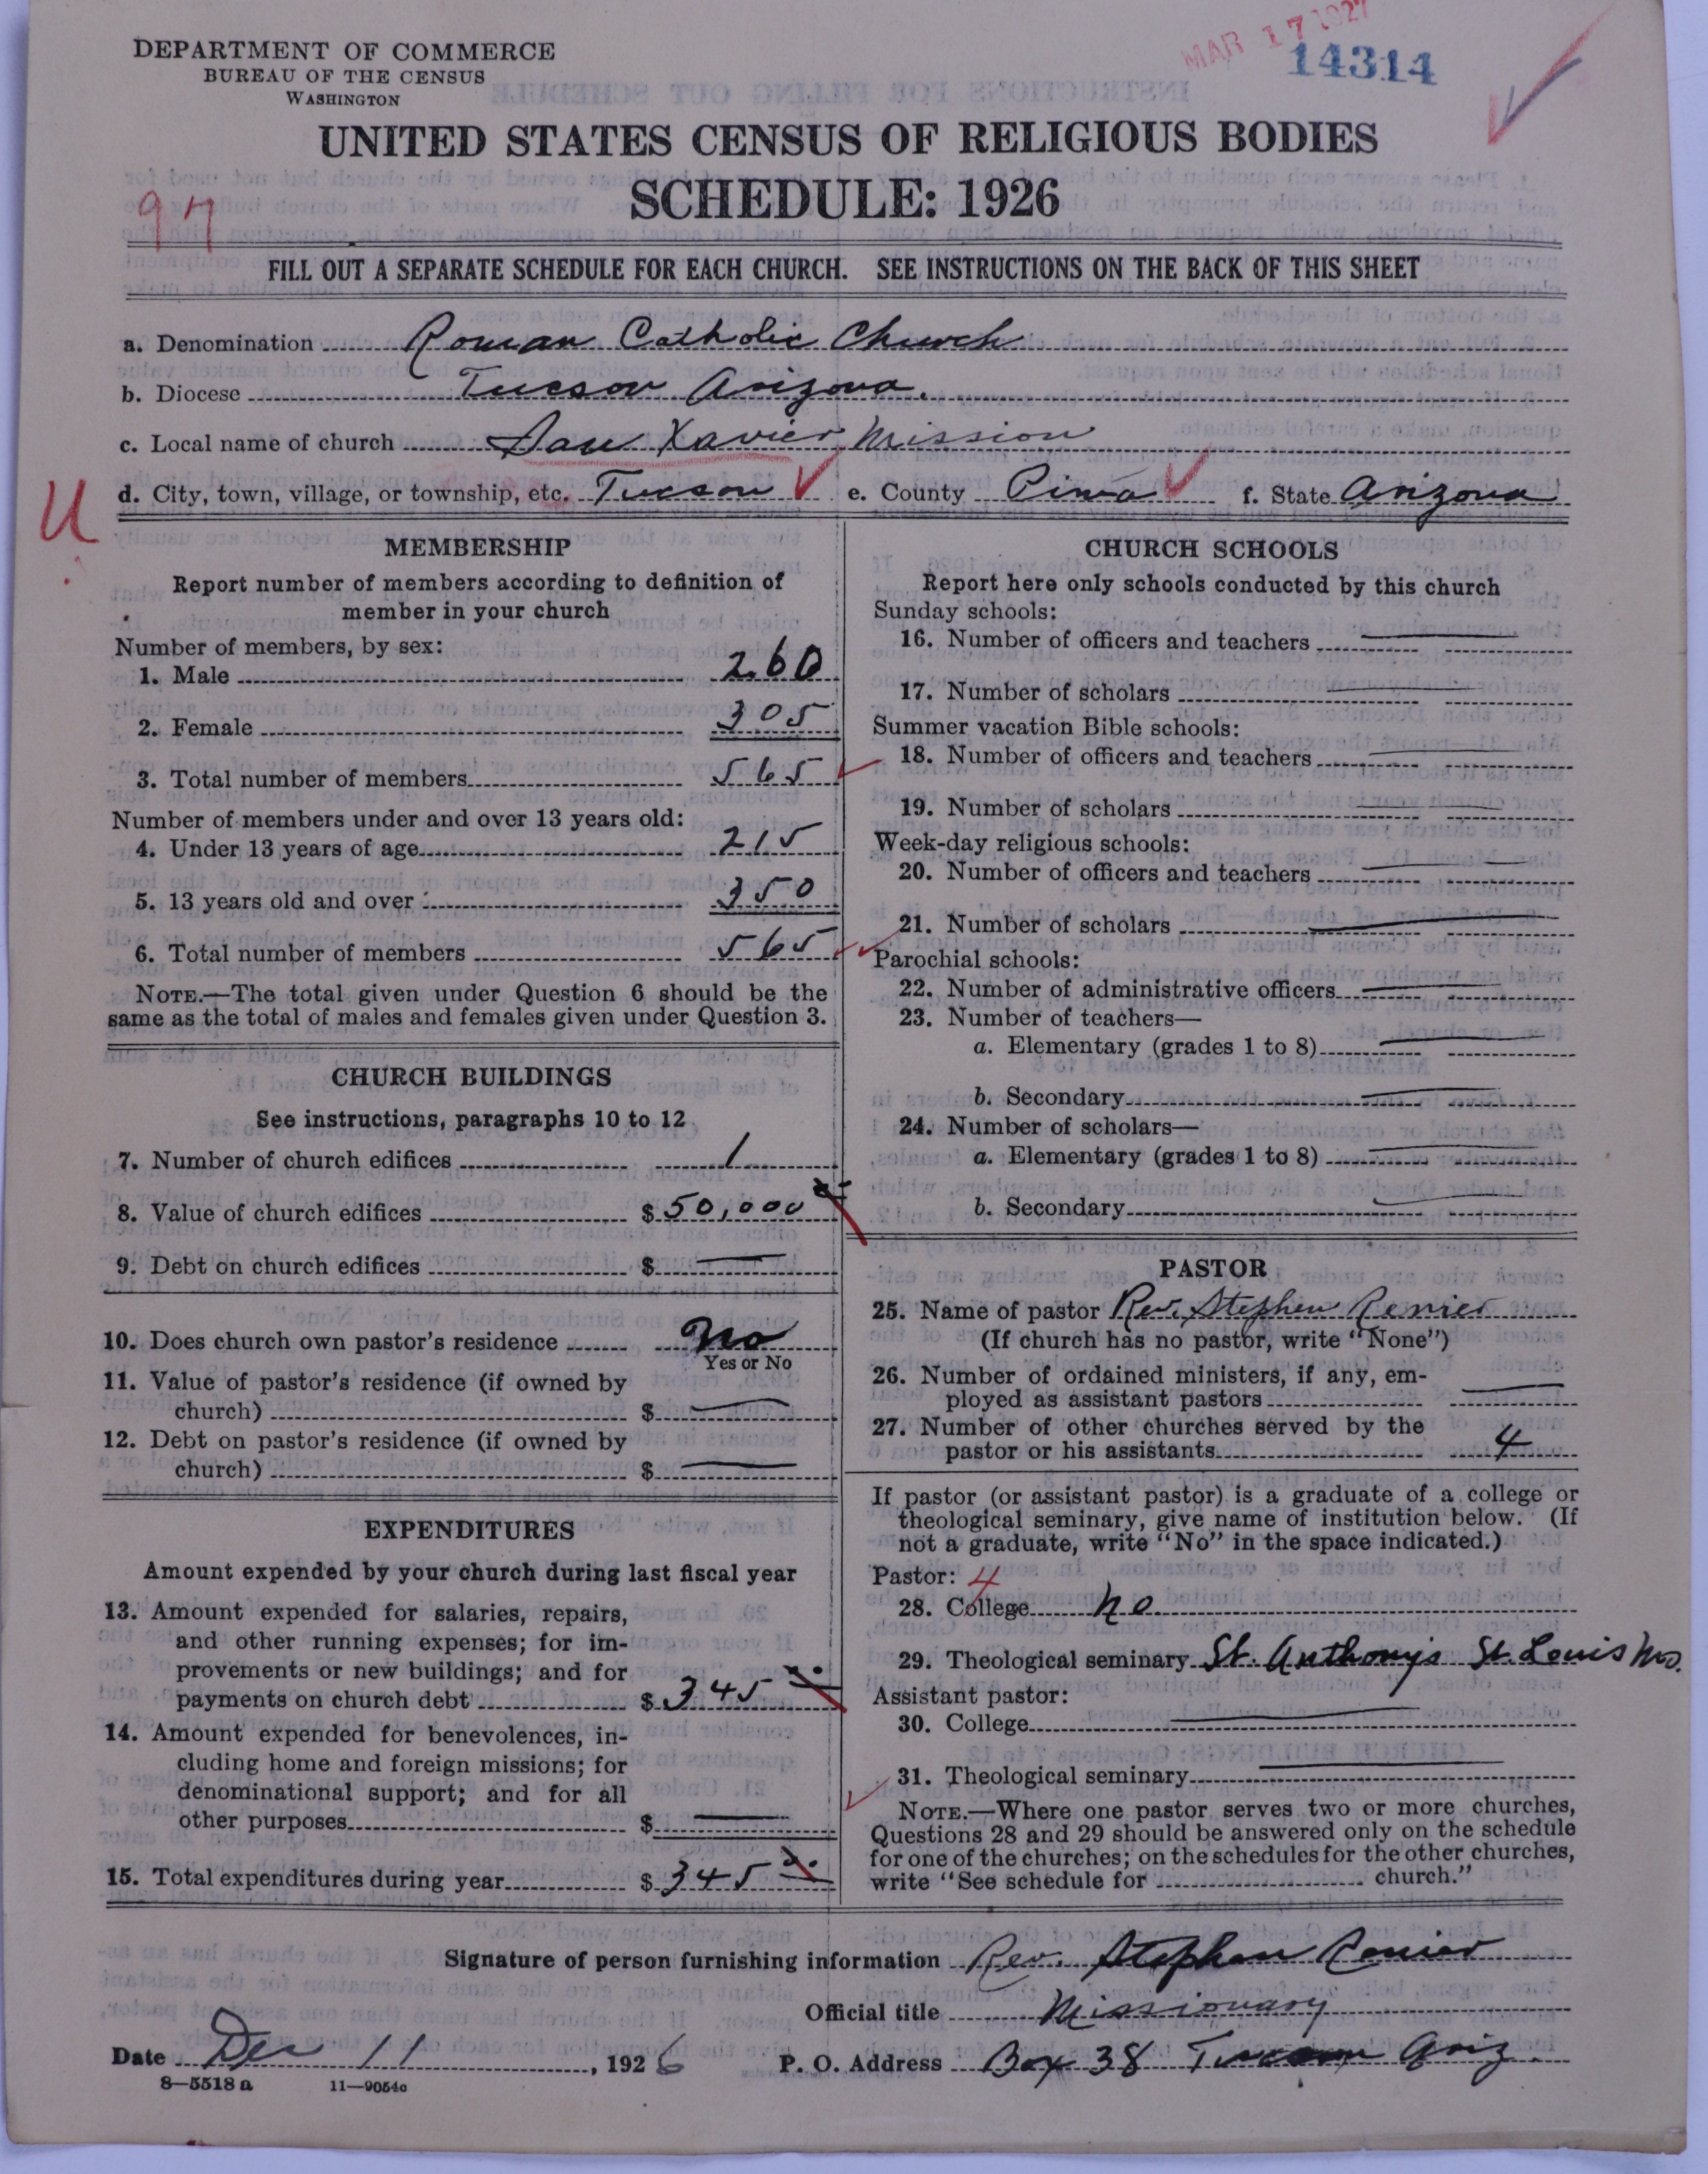 DEPARTMENT OF COMMERCE
BUREAU OF THE CENSUS
WASHINGTON
MAR 17 1927
14314
UNITED STATES CENSUS OF RELIGIOUS BODIES
SCHEDULE: 1926
FILL OUT A SEPARATE SCHEDULE FOR EACH CHURCH. SEE INSTRUCTIONS ON THE BACK OF THIS SHEET
a. Denomination Roman Catholic Church
b. Diocese Tucson Arizona.
c. Local name of church San Xavier Mission
U d. City, town, village, or township, etc. Tucson e. County Pima f. State Arizona
MEMBERSHIP
Report number of members according to definition of
member in your church
Number of members, by sex:
1. Male 260
2. Female 305
3. Total number of members 565
Number of members under and over 13 years old:
4. Under 13 years of age 215
5. 13 years old and over 350
6. Total number of members 565
NOTE.—The total given under Question 6 should be the
same as the total of males and females given under Question 3.
CHURCH BUILDINGS
See instructions, paragraphs 10 to 12
7. Number of church edifices 1
8. Value of church edifices $ 50,000
9. Debt on church edifices $ —
10. Does church own pastor's residence No
Yes or No
11. Value of pastor's residence (if owned by
church) $ —
12. Debt on pastor's residence (if owned by
church) $ —
EXPENDITURES
Amount expended by your church during last fiscal year
13. Amount expended for salaries, repairs,
and other running expenses; for im-
provements or new buildings; and for
payments on church debt $ 345
14. Amount expended for benevolences, in-
cluding home and foreign missions; for
denominational support; and for all
other purposes $ —
15. Total expenditures during year $ 345
CHURCH SCHOOLS
Report here only schools conducted by this church
Sunday schools:
16. Number of officers and teachers —
17. Number of scholars —
Summer vacation Bible schools:
18. Number of officers and teachers —
19. Number of scholars —
Week-day religious schools:
20. Number of officers and teachers —
21. Number of scholars —
Parochial schools:
22. Number of administrative officers —
23. Number of teachers—
a. Elementary (grades 1 to 8) —
b. Secondary —
24. Number of scholars—
a. Elementary (grades 1 to 8) —
b. Secondary —
PASTOR
25. Name of pastor Rev. Stephen Renier
(If church has no pastor, write "None")
26. Number of ordained ministers, if any, em-
ployed as assistant pastors —
27. Number of other churches served by the
pastor or his assistants 4
If pastor (or assistant pastor) is a graduate of a college or
theological seminary, give name of institution below. (If
not a graduate, write "No" in the space indicated.)
Pastor: 4
28. College no
29. Theological seminary St. Anthonys St. Louis Mo.
Assistant pastor:
30. College —
31. Theological seminary —
NOTE.—Where one pastor serves two or more churches,
Questions 28 and 29 should be answered only on the schedule
for one of the churches; on the schedules for the other churches,
write "See schedule for church."
Signature of person furnishing information Rev. Stephen Renier
Official title Missionary
Date Dec 11, 1926 P. O. Address Box 38 Tucson Ariz.
8—5518 a 11—9054c